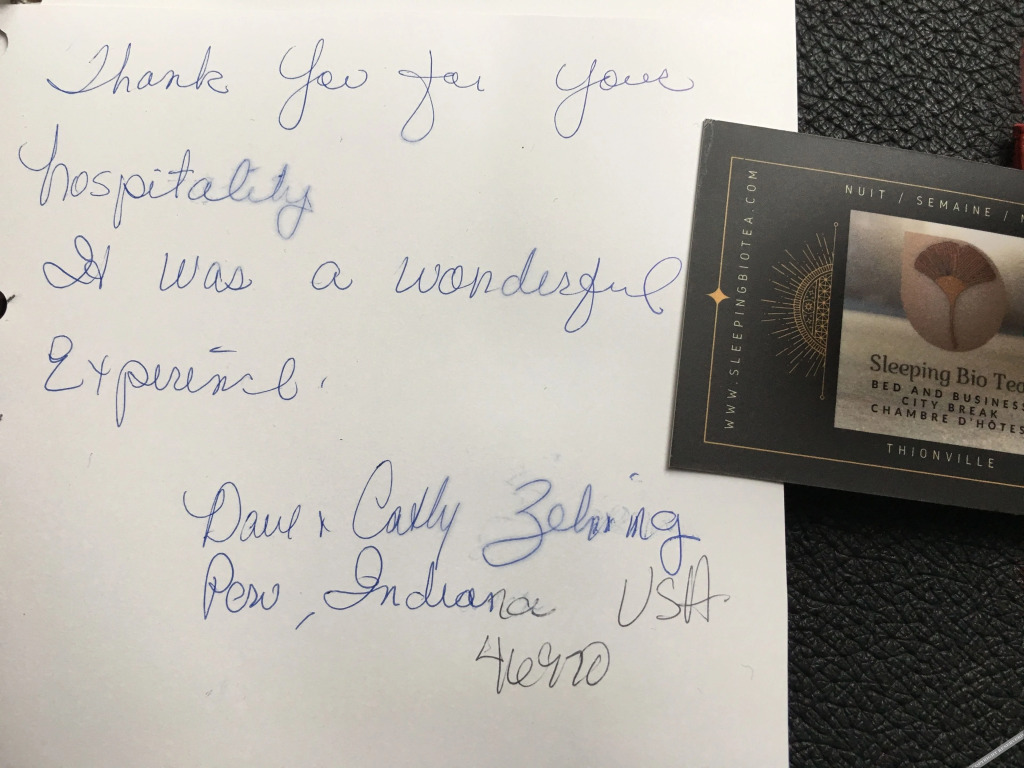 Thank You for your
hospitality
It was a wonderful
Experience.
Dave & Cathy Zehring
Peru, Indiana USA
46970
WWW.SLEEPINGBIOTEA.COM
NUIT / SEMAINE /
Sleeping Bio Tea
BED AND BUSINESS
CITY BREAK
CHAMBRE D'HÔTES
THIONVILLE